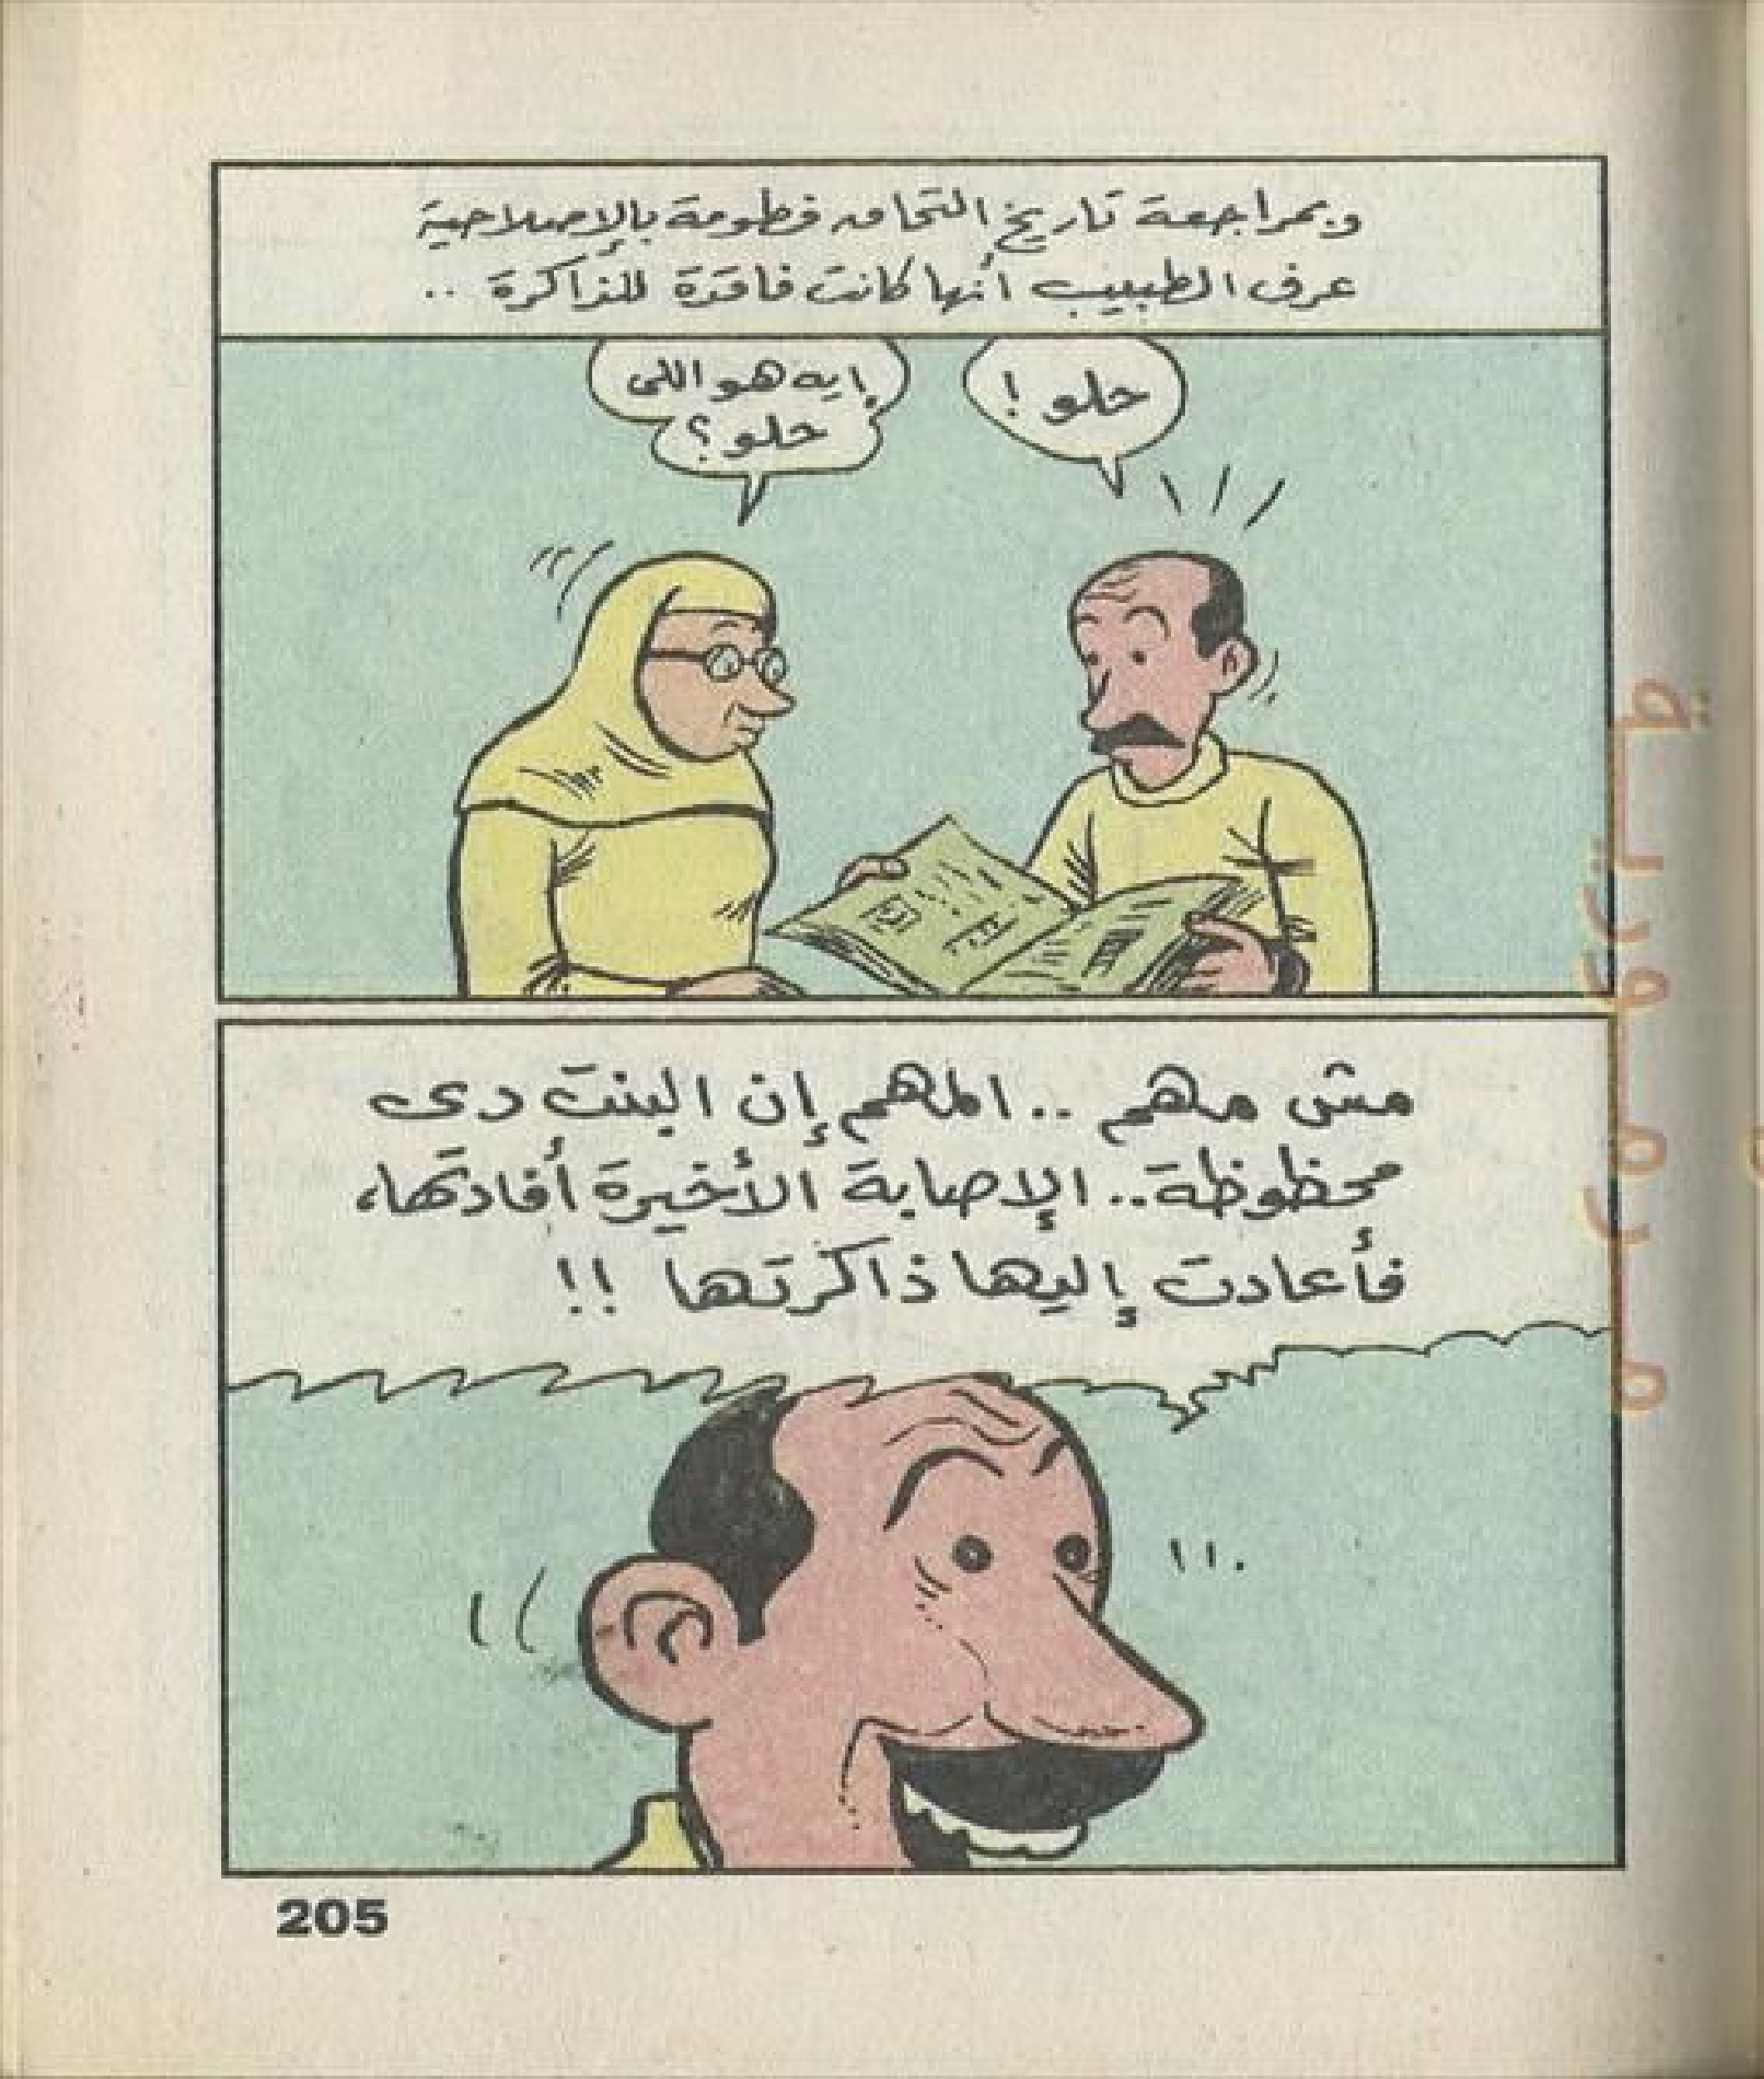 وبمراجعة تاريخ التحاق فطومة بالإصلاحية
عرف الطبيب أنها كانت فاقدة للذاكرة ..
حلو !
إيه هو اللى
حلو ؟
مش مهم .. المهم إن البنت دى
محظوظة .. الإصابة الأخيرة أفادتها،
فأعادت إليها ذاكرتها !!
205